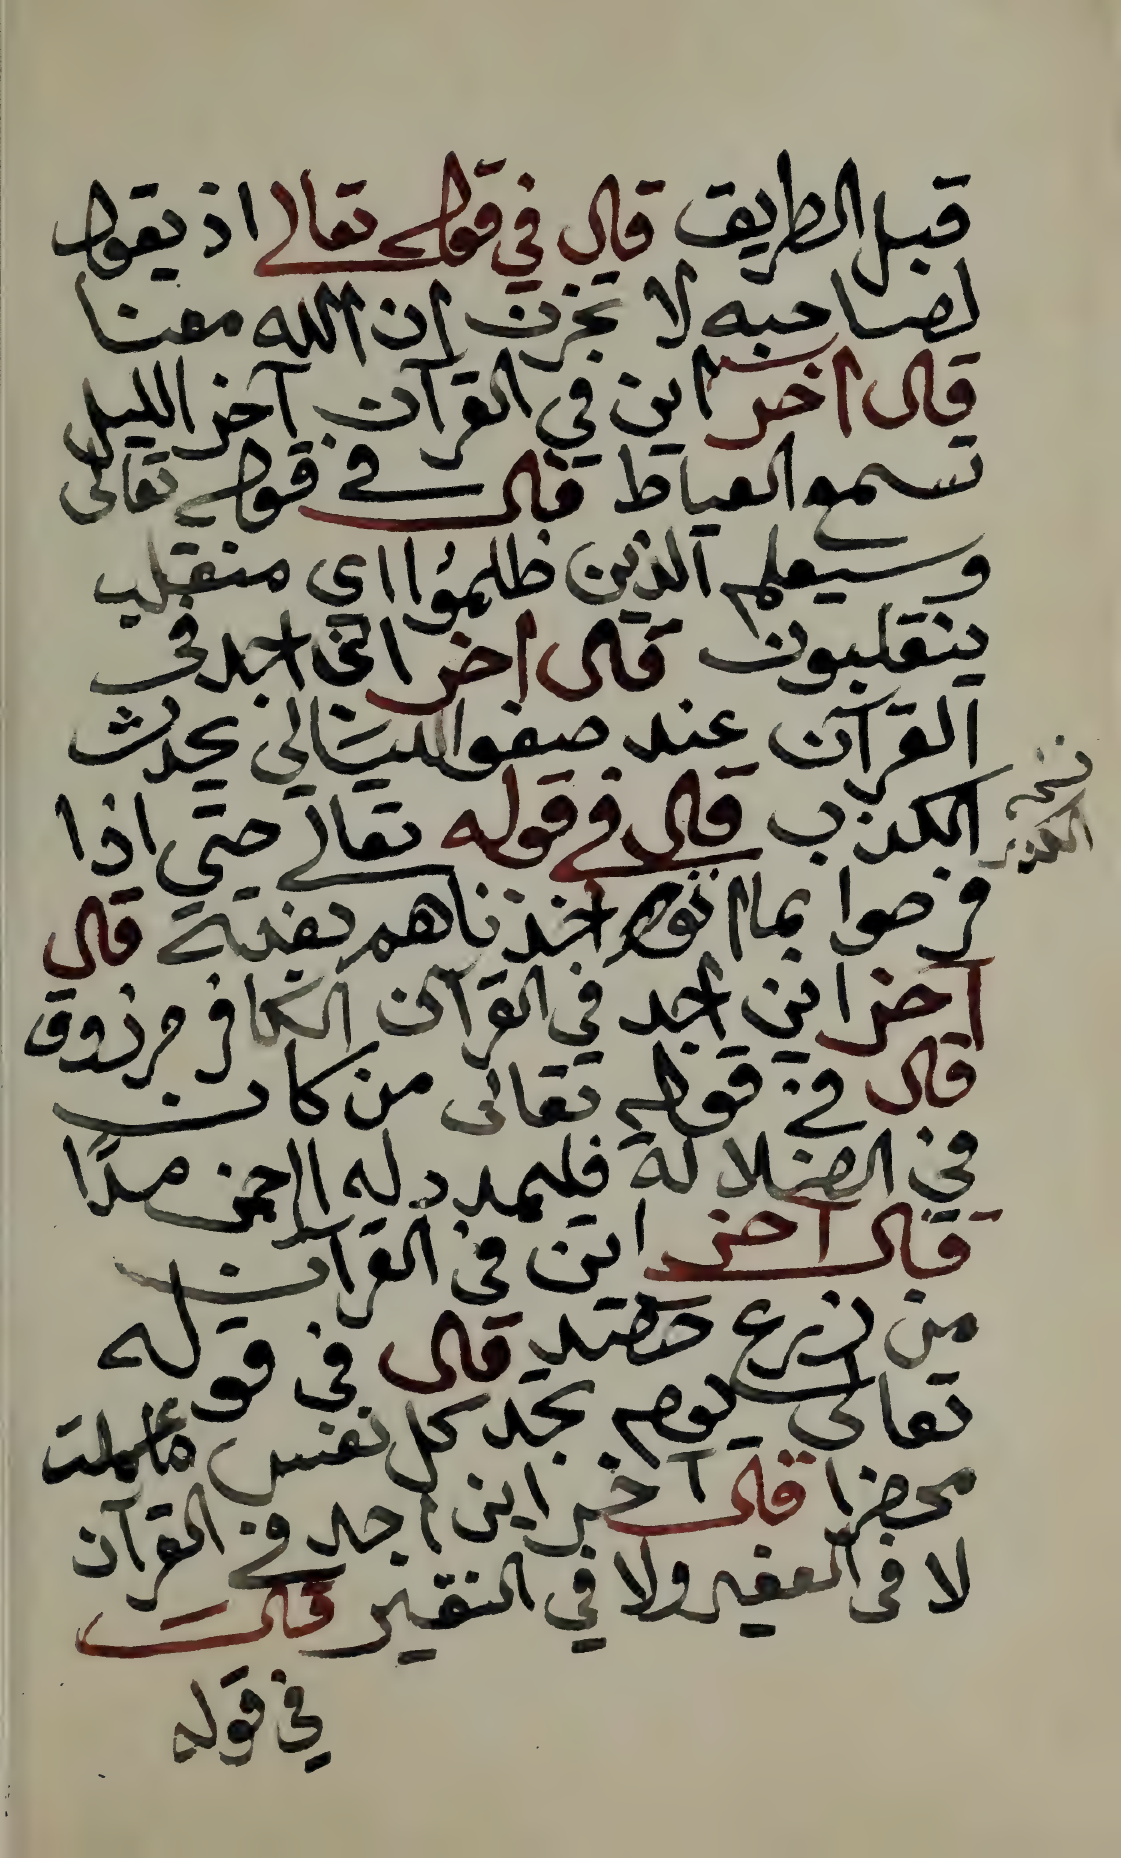 قبل الطريق قال في قوله تعالى اذ يقول
لصاحبه لا تحزن إن الله معنا
قال آخر اين في القرآن آخر الليل
تسمع العياط قال في قوله تعالى
وسيعلم الذين ظلموا اي منقلب
ينقلبون قال اخر اين اجد في
القرآن عند صفو الليالي يحدث
الكدر قال في قوله تعالى حتى اذا
فرحوا بما اتوا اخذناهم بغتة قال
آخر اين اجد في القرآن الكافر مرزوق
قال في قوله تعالى من كان
في الضلالة فليمدد له الرحمن مدًا
قال آخر اين في القرآن
من زرع حصد قال في قوله
تعالى يوم تجد كل نفس ما عملت
محضرا قال آخر اين اجد في القرآن
لا في العفير ولا في النقير قال
في قوله
نسخه